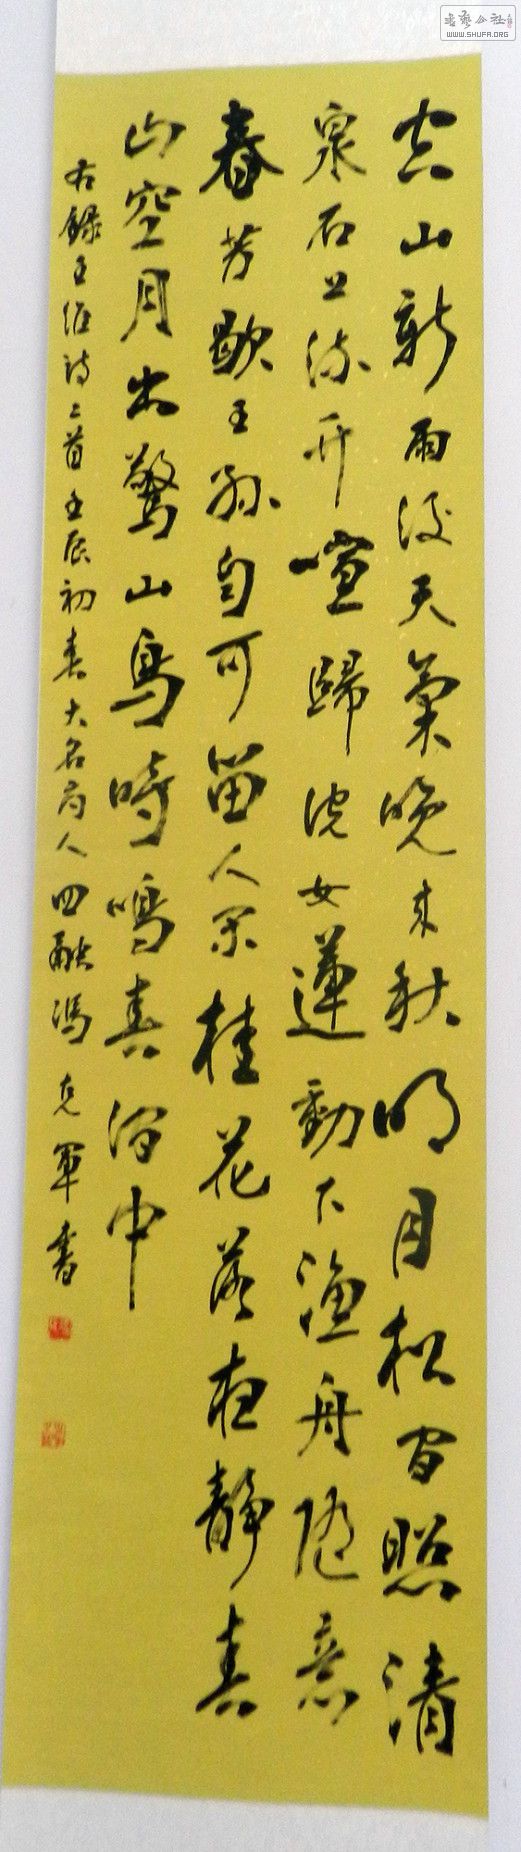 空山新雨後天氣晚來秋明月松间照清
泉石上流竹喧歸浣女蓮動下漁舟隨意
春芳歇王孫自可留人閑桂花落夜靜春
山空月出驚山鳥時鳴春澗中
右錄王維詩二首壬辰初春大名府人四融馮克軍書
書藝公社
WWW.SHUFA.ORG